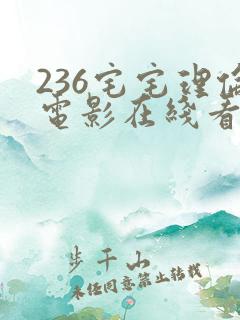 236宅宅理倫
電影在綫看
步千山
未经同意禁止转载